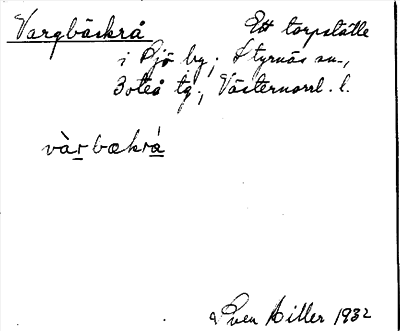 Vargbäckrå Ett torpställe
i Sjö by, Styrnäs sn.,
Boteå tg., Västernorrl. l.
vàr bækrá
Sven Hiller 1932